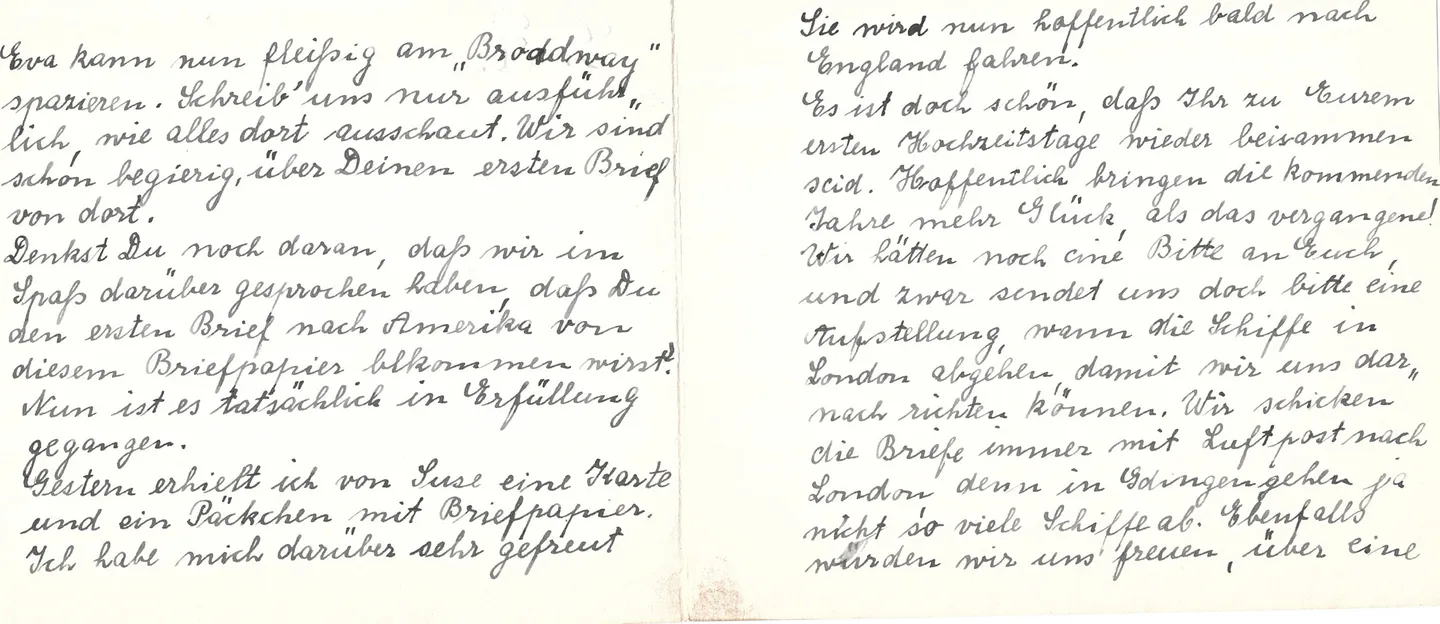 Eva kann nun fleißig am „Broddway"
spazieren. Schreib' uns nur ausführ„
lich, wie alles dort ausschaut. Wir sind
schon begierig, über Deinen ersten Brief
von dort.
Denkst Du noch daran, daß wir im
Spaß darüber gesprochen haben, daß Du
den ersten Brief nach Amerika von
diesem Briefpapier bekommen wirst?
Nun ist es tatsächlich in Erfüllung
gegangen.
Gestern erhielt ich von Suse eine Karte
und ein Päckchen mit Briefpapier.
Ich habe mich darüber sehr gefreut
Sie wird nun hoffentlich bald nach
England fahren.
Es ist doch schön, daß Ihr zu Eurem
ersten Hochzeitstage wieder beisammen
seid. Hoffentlich bringen die kommenden
Jahre mehr Glück, als das vergangene!
Wir hätten noch eine Bitte an Euch,
und zwar sendet uns doch bitte eine
Aufstellung, wann die Schiffe in
London abgehen, damit wir uns dar„
nach richten können. Wir schicken
die Briefe immer mit Luftpost nach
London denn in Gdingen gehen ja
nicht so viele Schiffe ab. Ebenfalls
würden wir uns freuen, über eine